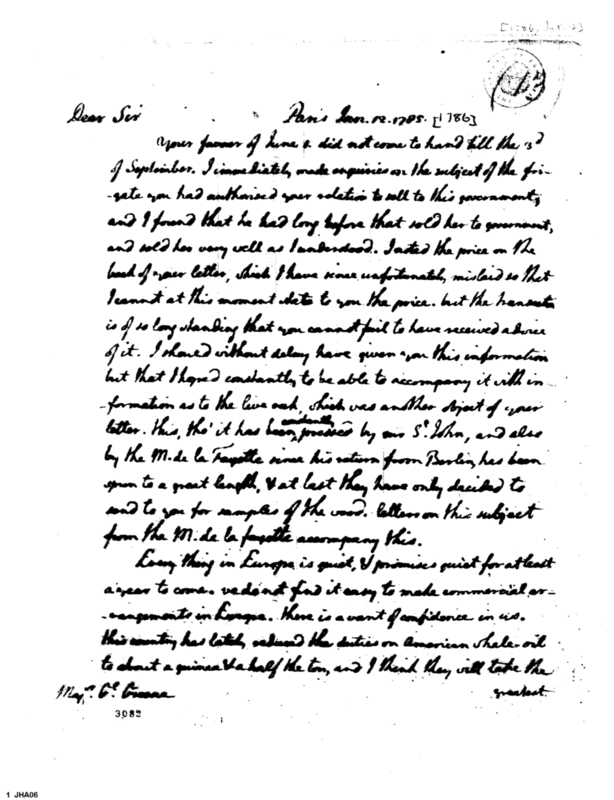 [1786, Jan. 12]
Dear Sir Paris Jan. 12. 1785. [1786]
Your favour of June 8 did not come to hand till the 3d
of September. I immediately made enquiries on the subject of the fri-
-gate you had authorised your relation to sell to this government,
and I found that he had long before that sold her to government,
and sold her very well as I understood. I noted the price on the
back of your letter, which I have since unfortunately mislaid so that
I cannot at this moment state to you the price. but the transaction
is of so long standing that you cannot fail to have received advice
of it. I should without delay have given you this information
but that I hoped constantly to be able to accompany it with in-
-formation as to the live oak, which was another object of your
letter. this, tho' it has been constantly pressed by mr St. John, and also
by the M. de la Fayette since his return from Berlin, has been
spun to a great length, & at last they have only decided to
send to you for samples of the wood. letters on this subject
from the M. de la fayette accompany this.
Every thing in Europe is quiet, & promises quiet for at least
a year to come. we do not find it easy to make commercial ar-
-rangements in Europe. there is a want of confidence in us.
this country has lately reduced the duties on American whale-oil
to about a guinea & a half the ton, and I think they will take the
Majr. Gl. Greene greatest
3082
1 JHA06